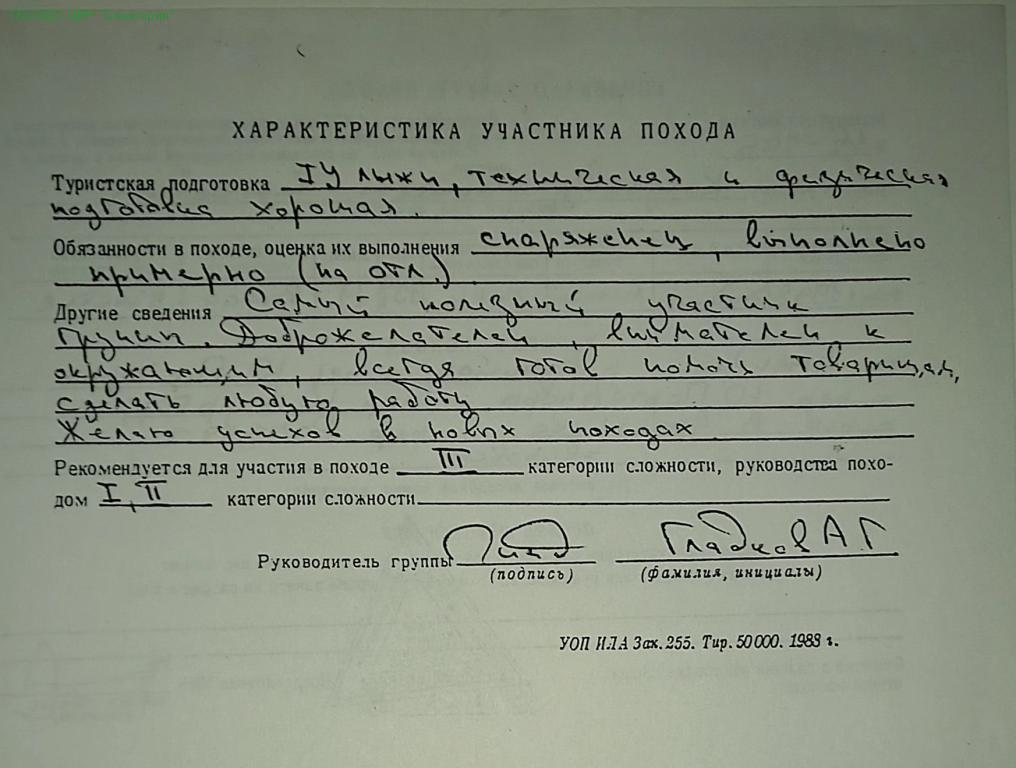 ХАРАКТЕРИСТИКА УЧАСТНИКА ПОХОДА
Туристская подготовка IУ лыжи, техническая и физическая
подготовка хорошая.
Обязанности в походе, оценка их выполнения снаряженец, выполнено
примерно (на отл.)
Другие сведения Самый полезный участник
группы. Доброжелателен, внимателен к
окружающим, всегда готов помочь товарищам,
сделать любую работу
Желаю успехов в новых походах
Рекомендуется для участия в походе III категории сложности, руководства похо-
дом I, II категории сложности
Руководитель группы Гладков А Г
(подпись) (фамилия, инициалы)
УОП ИЛА Зак. 255. Тир. 50 000. 1983 г.